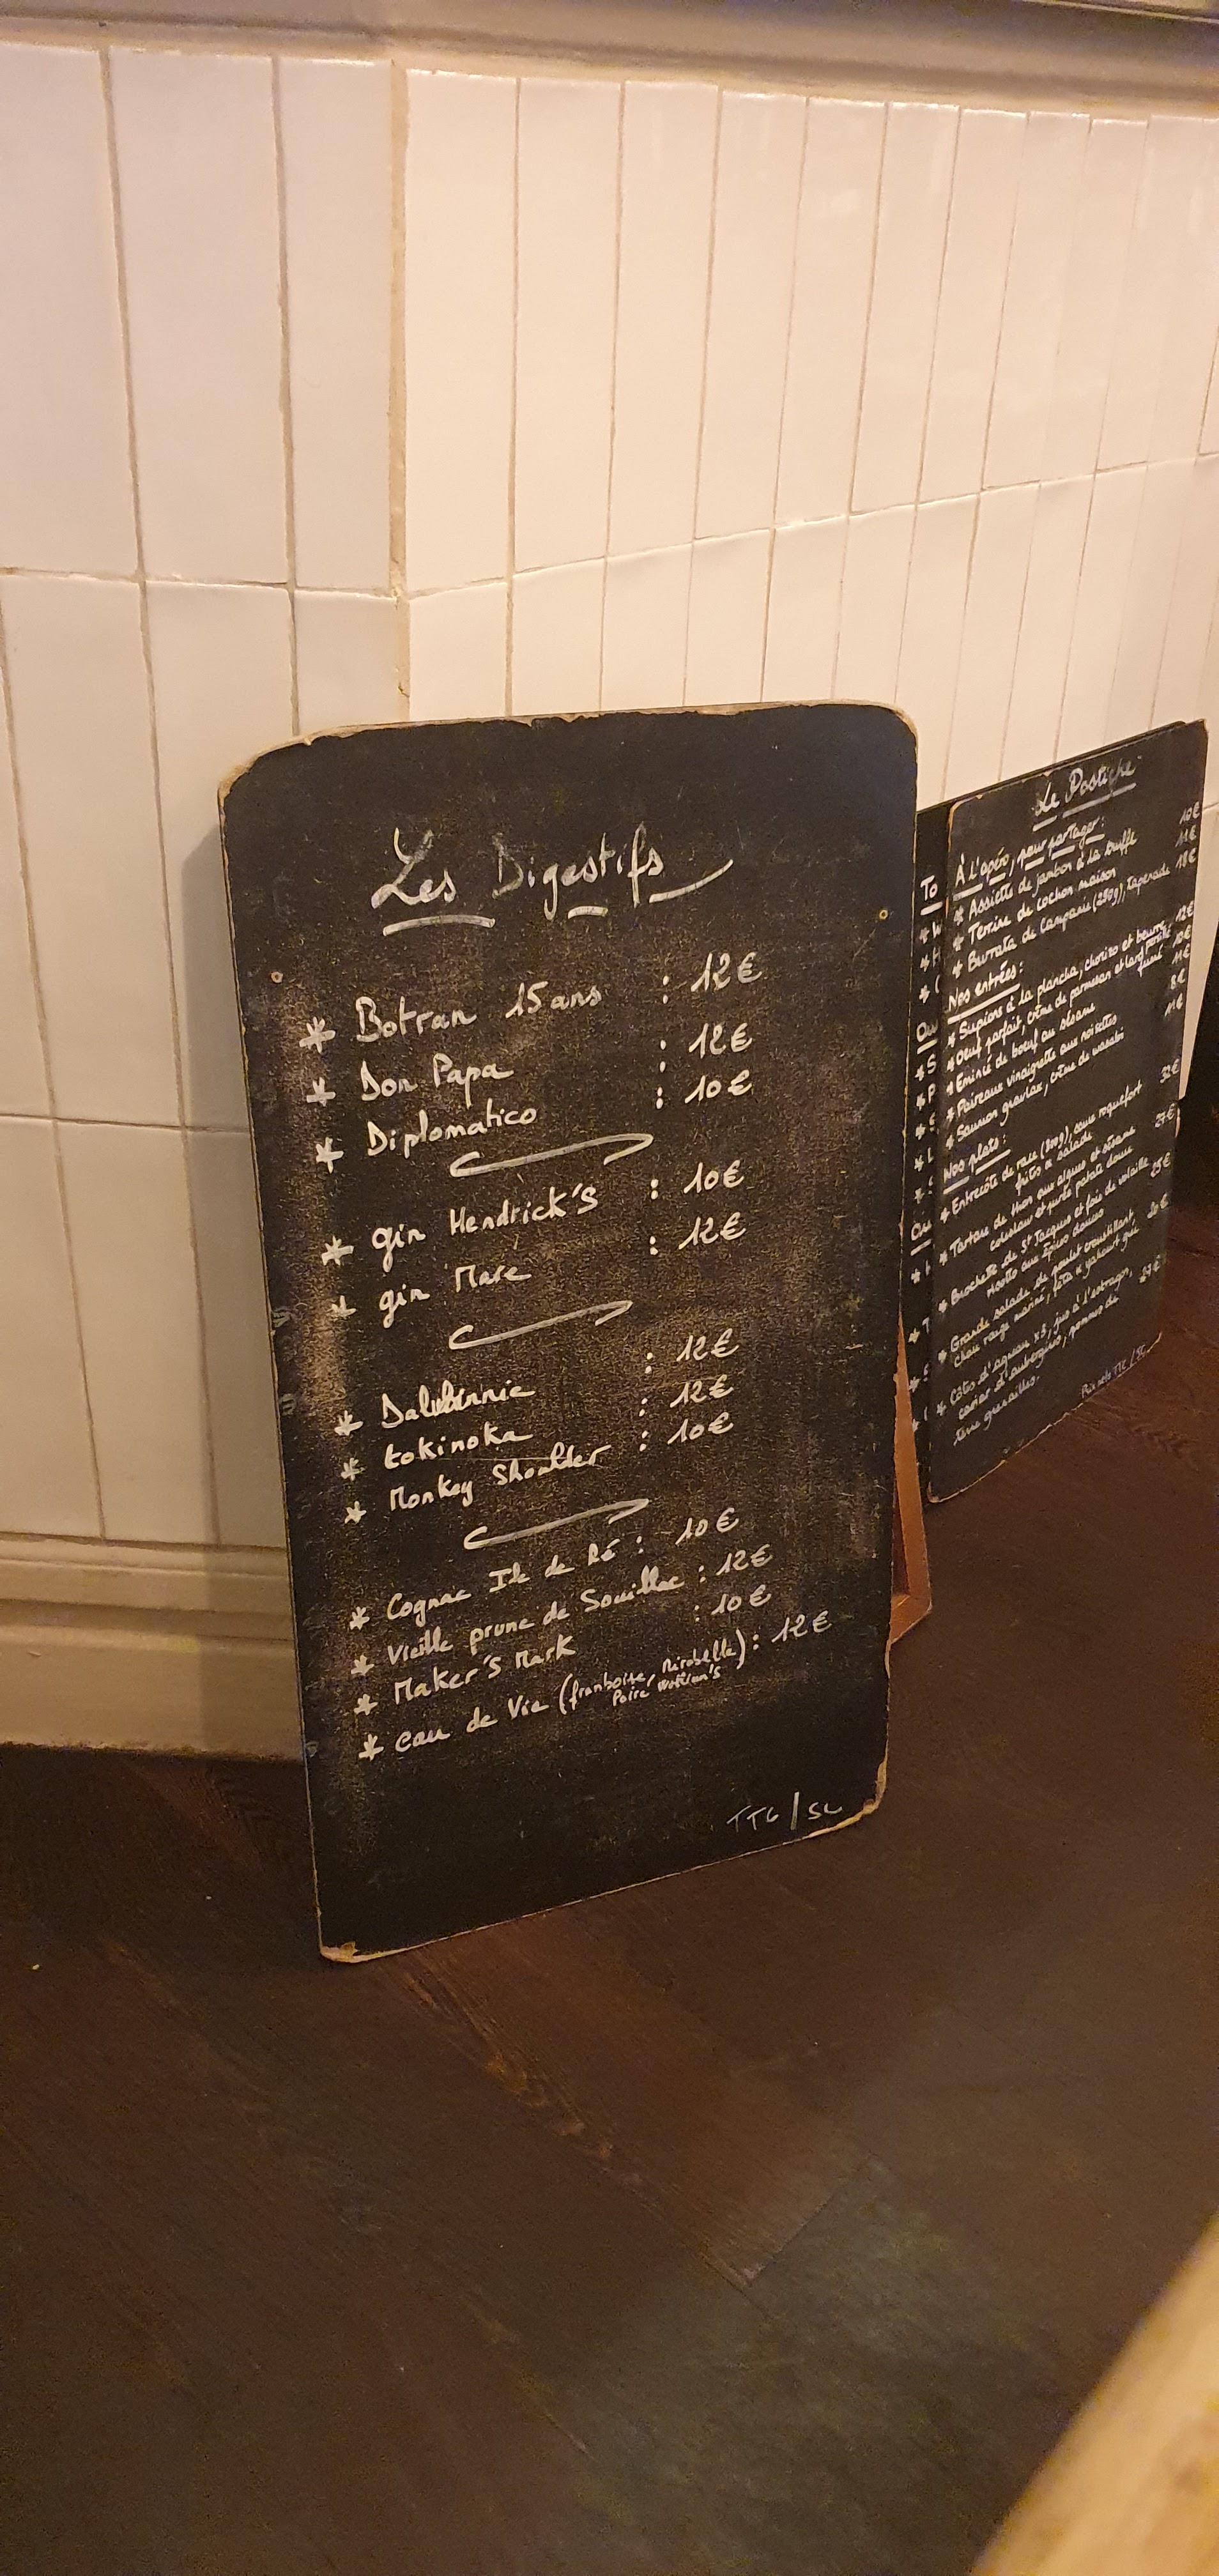 Les Digestifs
* Botran 15 ans : 12€
* Don Papa : 12€
* Diplomatico : 10€
* gin Hendrick's : 10€
* gin Mare : 12€
: 12€
* tokinoka : 12€
* Monkey Shoulder : 10€
* Cognac Ile de Ré : 10€
* Vieille prune de Souillac : 12€
* Maker's Mark : 10€
* eau de Vie (framboise, Mirabelle) : 12€
Poire
Le Postiche
À l'apéro, pour partager :
* Assiette de jambon à la truffe 10€
* Terrine de cochon maison 11€
* Burrata di Campanie (250g), tapenade 18€
Nos entrées :
* Supions à la plancha, chorizo et beurre 12€
* Oeuf parfait, crème de parmesan et lard paysan fumé 10€
* Émincé de boeuf au sésame 11€
* Poireaux vinaigrette aux noisettes 8€
* Saumon gravlax, crème de wasabi 11€
Nos plats :
* Entrecôte de race (300g), sauce roquefort 32€
frites & salade
* Tartare de thon aux algues et sésame 27€
coleslaw et purée patate douce
* Brochette de St Jacques et foie de volaille 25€
risotto aux épices douces
* Grande salade de poulet croustillant 20€
chou rouge mariné, féta & yahourt grec
* Côtes d'agneau x3, jus à l'estragon, 27€
caviar d'aubergine, pommes de
terre grenailles.